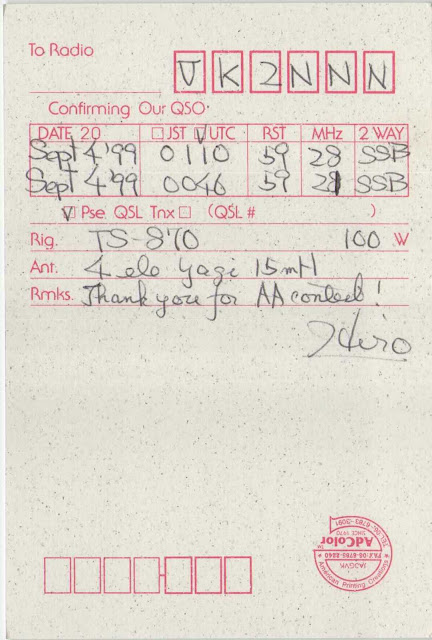 To Radio
VK2NNN
Confirming Our QSO
DATE 20 JST UTC RST MHz 2 WAY
Sept 4 '99 0110 59 28 SSB
Sept 4 '99 0046 59 21 SSB
Pse QSL Tnx (QSL # )
Rig. TS-870 100 W
Ant. 4 ele Yagi 15mH
Rmks. Thank you for AA contest!
Hiro
AdColor
SINCE 1970
JA3GVK
American Printing Creations